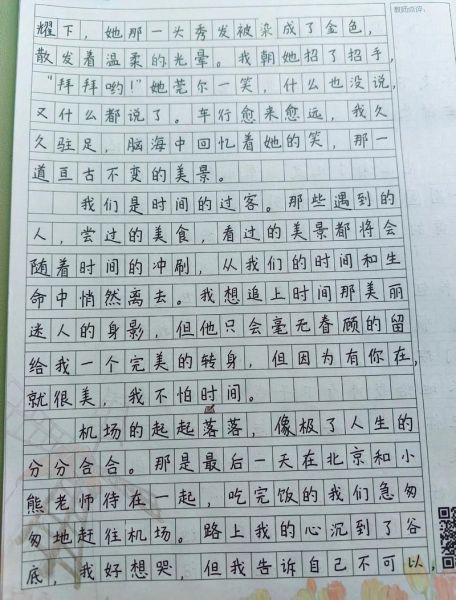 教师点评:
耀下，她那一头秀发被染成了金色，
散发着温柔的光晕。我朝她招了招手，
“拜拜哟！”她莞尔一笑，什么也没说，
又什么都说了。车行愈来愈远，我久
久驻足，脑海中回忆着她的笑，那一
道亘古不变的美景。
我们是时间的过客。那些遇到的
人，尝过的美食，看过的美景都将会
随着时间的冲刷，从我们的时间和生
命中悄然离去。我想追上时间那美丽
迷人的身影，但他只会毫无眷顾的留
给我一个完美的转身，但因为有你在，
就很美，我不怕时间。
机场的起起落落，像极了人生的
分分合合。那是最后一天在北京和小
熊老师待在一起，吃完饭的我们急匆
匆地赶往机场。路上我的心沉到了谷
底，我好想哭，但我告诉自己不可以，